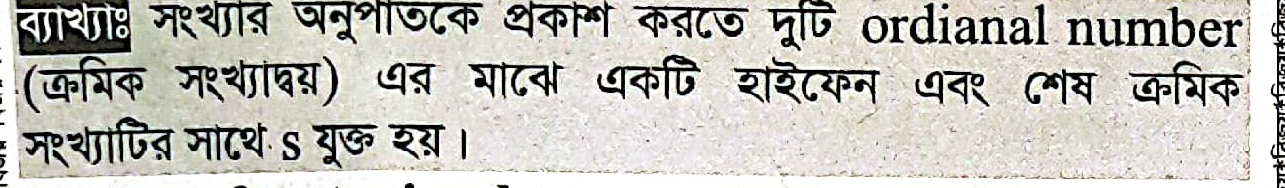 ব্যাখ্যাঃ সংখ্যার অনুপাতকে প্রকাশ করতে দুটি ordianal number
(ক্রমিক সংখ্যাদ্বয়) এর মাঝে একটি হাইফেন এবং শেষ ক্রমিক
সংখ্যাটির সাথে s যুক্ত হয়।